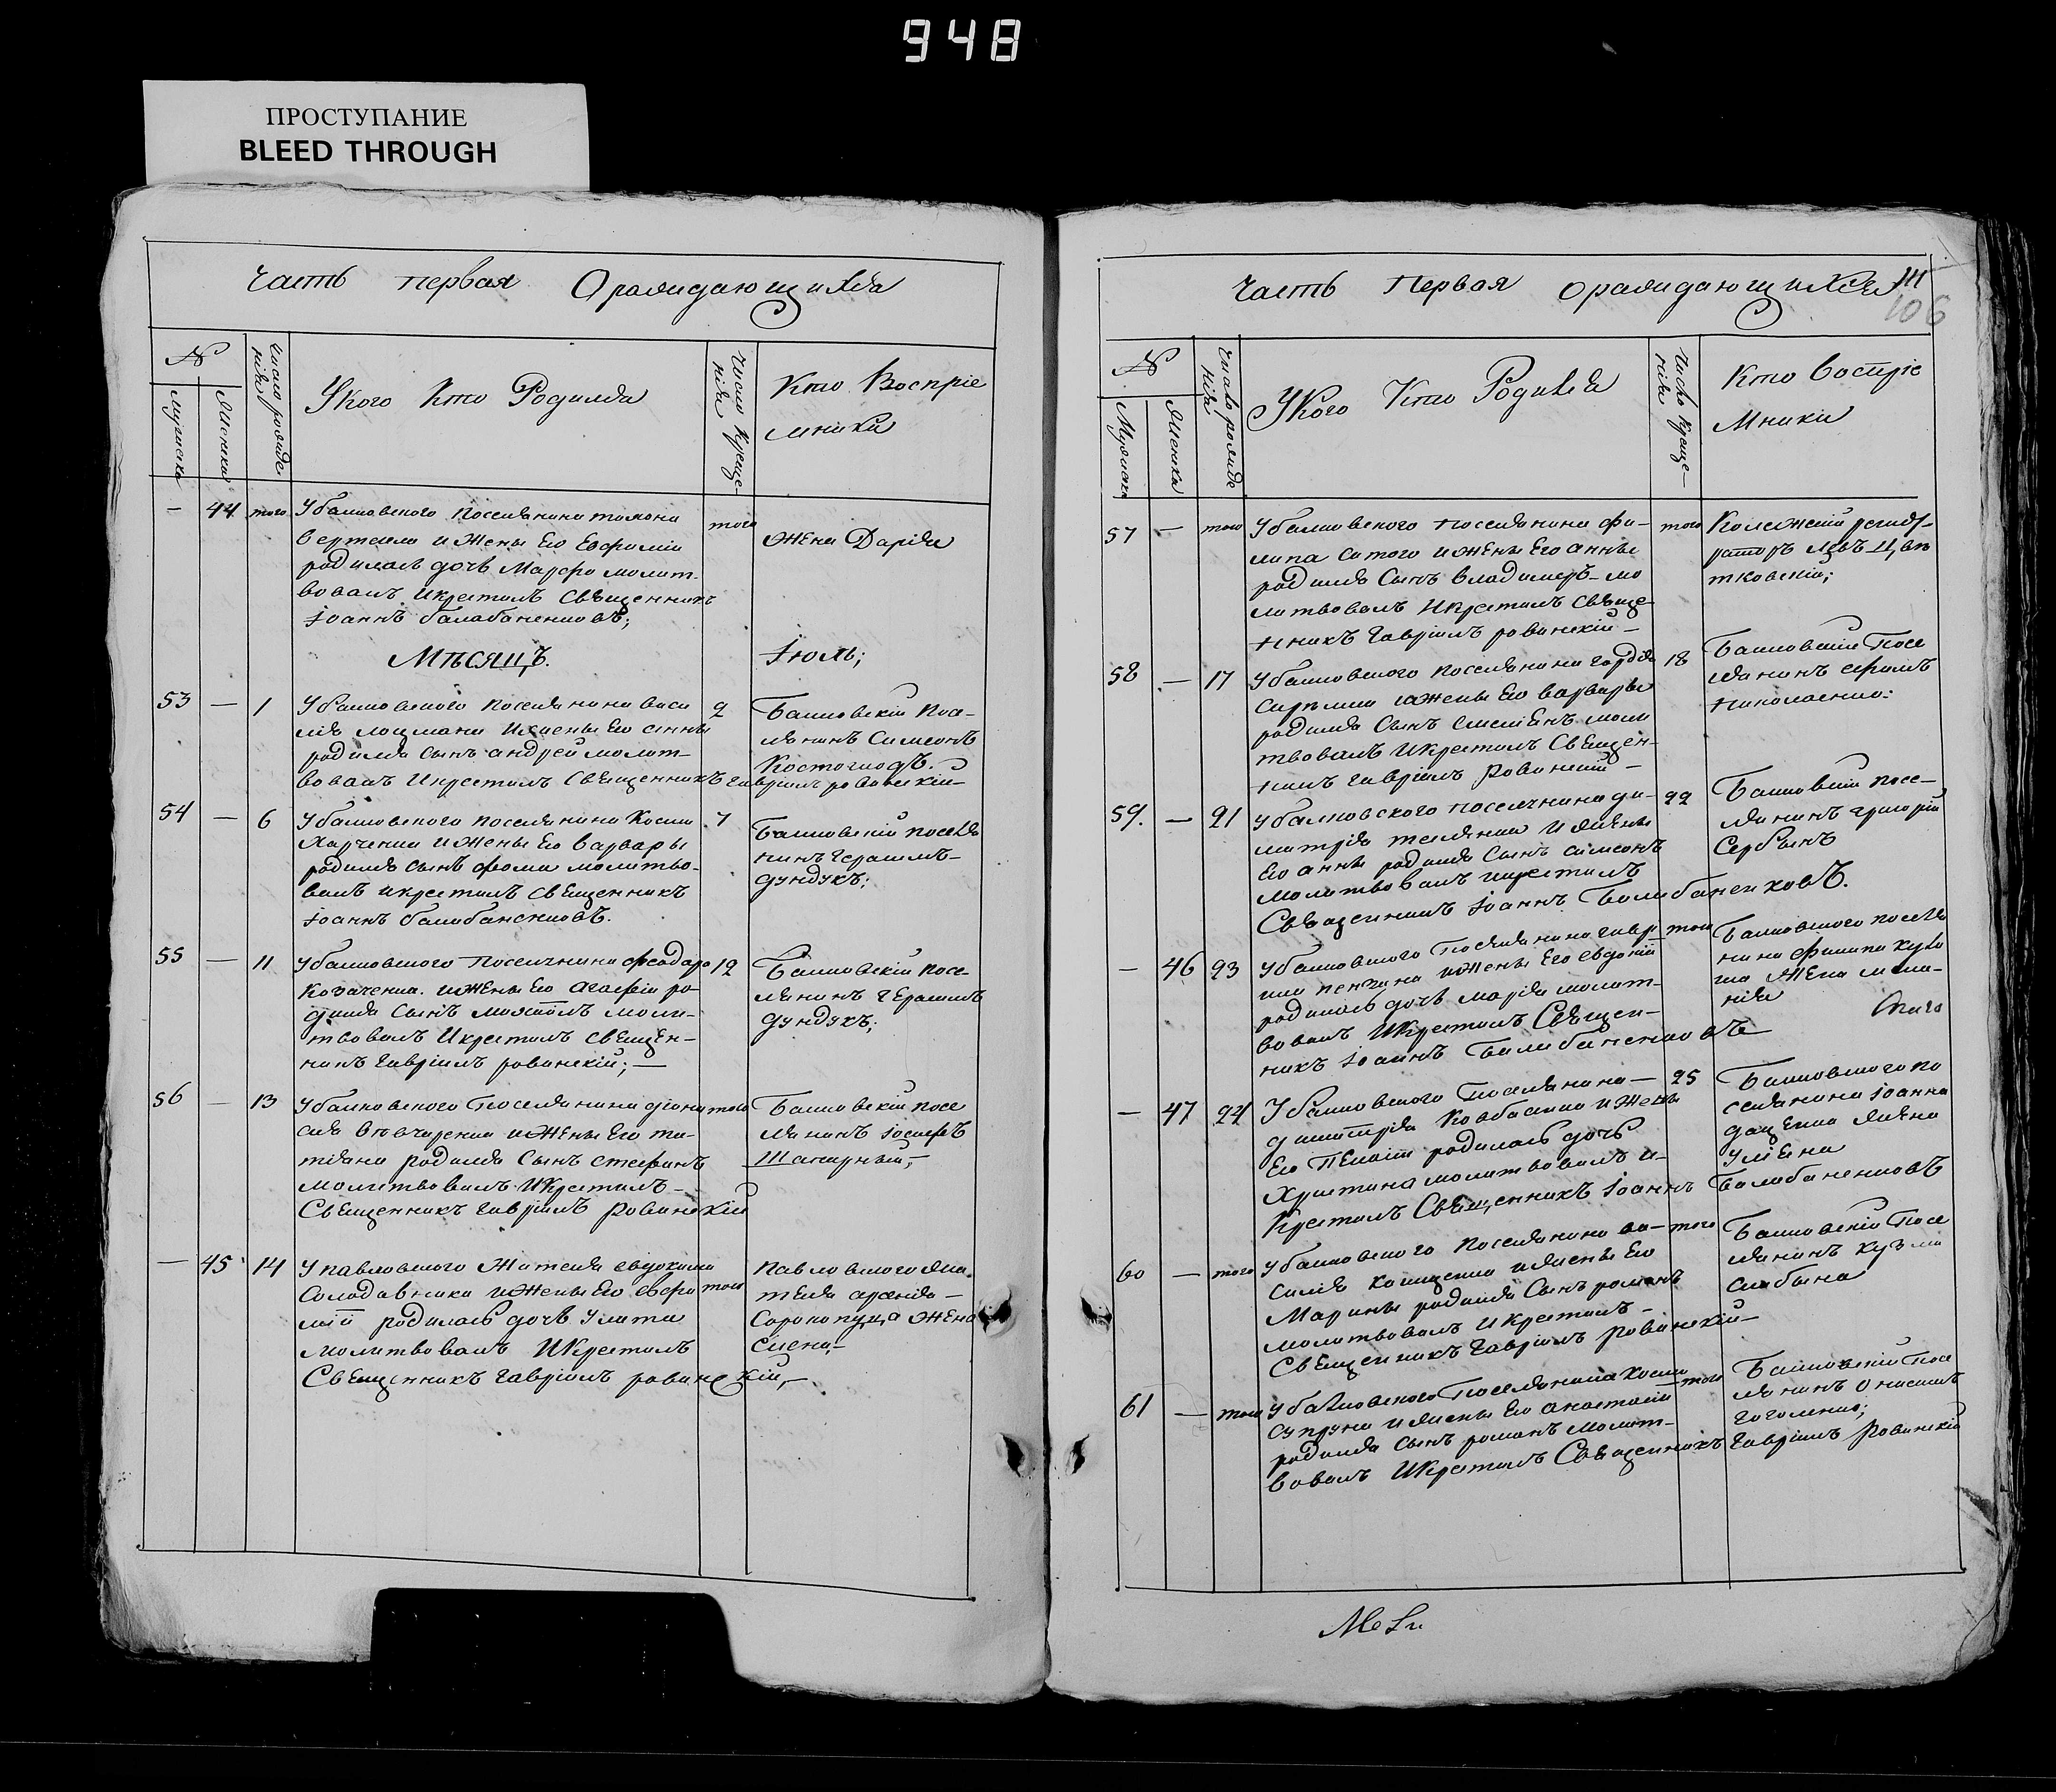 948
ПРОСТУПАНИЕ
BLEED THROUGH
Часть первая О раждающихся
№
Мужеска
Женска
Число рожде
нія
У кого Кто Родился
Число Креще-
нія
Кто Воспріе
мники
- 44 того
У балковского поселянина
и жены его Евфиміи
родилась дочь Марфа молит-
вовалъ и крестилъ Священникъ
Іоаннъ балабаненковъ;
того
жена Дарія
Мѣсяцъ.
Іюль;
53 — 1
У балковского поселянина васи
лія лоцмана и жены его анны
родился сынъ андрей молит-
вовалъ и крестилъ Священникъ гавріилъ ровинскій
2
Балковскій посе-
лянинъ Симеонъ
54 — 6
У балковского поселянина Косми
Харченка и жены его варвары
родился сынъ фома молитво-
валъ и крестилъ священникъ
Іоаннъ балабаненковъ.
7
Балковскій поселя
нинъ герасимъ
дундукъ;
55 — 11
У балковского поселянина феодора
Козаченка. и жены его агафіи ро-
дился сынъ моли-
твовалъ и крестилъ священ-
никъ гавріилъ ровинскій; —
12
Балковскій посе-
лянинъ герасимъ
дундукъ;
56 — 13
У балковского поселянина діони
сія вѣвчаренка и жены его та-
тіяны родился сынъ стефанъ
молитвовалъ и крестилъ
Священникъ гавріилъ ровинскій
того
Балковскій посе
лянинъ іосифъ
— 45 14
У павловского жителя евдокима
Солодовника и жены его евфи
міи родилась дочь улита
молитвовалъ и крестилъ
Священникъ гавріилъ ровинскій,
того
павловского жи-
теля арсенія
Сорокопуда жена
Часть Первая о раждающихся
111
106
№
Мужеска
Женска
Число рожде
нія
У Кого Кто Родился
Число Креще-
нія
Кто воспріе
мники
57 — того
У балковского поселянина фи-
липа сытого и жены его анны
родился сынъ владимеръ мо
литвовалъ и крестилъ свяще-
нникъ гавріилъ ровинскій
того
Колежскій регист-
раторъ левъ цвѣ
тковскій;
58 — 17
У балковского поселянина гордѣя
и жены его варвары
родился сынъ моли
твовалъ и крестилъ Священ-
никъ гавріилъ ровинскій
18
Балковскій посе
лянинъ ефимъ
николаенко.
59. — 21
У балковского поселянина ди-
митрія и жены
его анны родился сынъ симеонъ
молитвовалъ и крестилъ
Священникъ Іоаннъ Балабаненковъ.
22
Балковскій посе-
лянинъ григорій
Сербинъ
— 46 23
У балковского поселянина гаври
и жены его евдокіи
родилась дочь марія молит-
вовалъ и крестилъ Священ-
никъ Іоаннъ Балабаненковъ
того
Балковского поселя
нина филипа
жена мела-
нія
— 47 24
У балковского поселянина
димитрія Ковбасюка и жены
его Пелагіи родилась дочь
Христина молитвовалъ и
Крестилъ Священникъ Іоаннъ Балабаненковъ
25
Балковского по
селянина Іоанна
даценка жена
уліяна
60 — того
У балковского поселянина ва-
силія и жены его
Марины родился сынъ романъ
молитвовалъ и крестилъ
Священникъ гавріилъ ровинскій
того
Балковскій посе
лянинъ кузма
61 — того
У балковского поселянина Косми
супруна и жены его анастасіи
родился сынъ романъ молит-
вовалъ и крестилъ Священникъ гавріилъ ровинскій
того
Балковскій посе
лянинъ онисимъ
гоголенко;